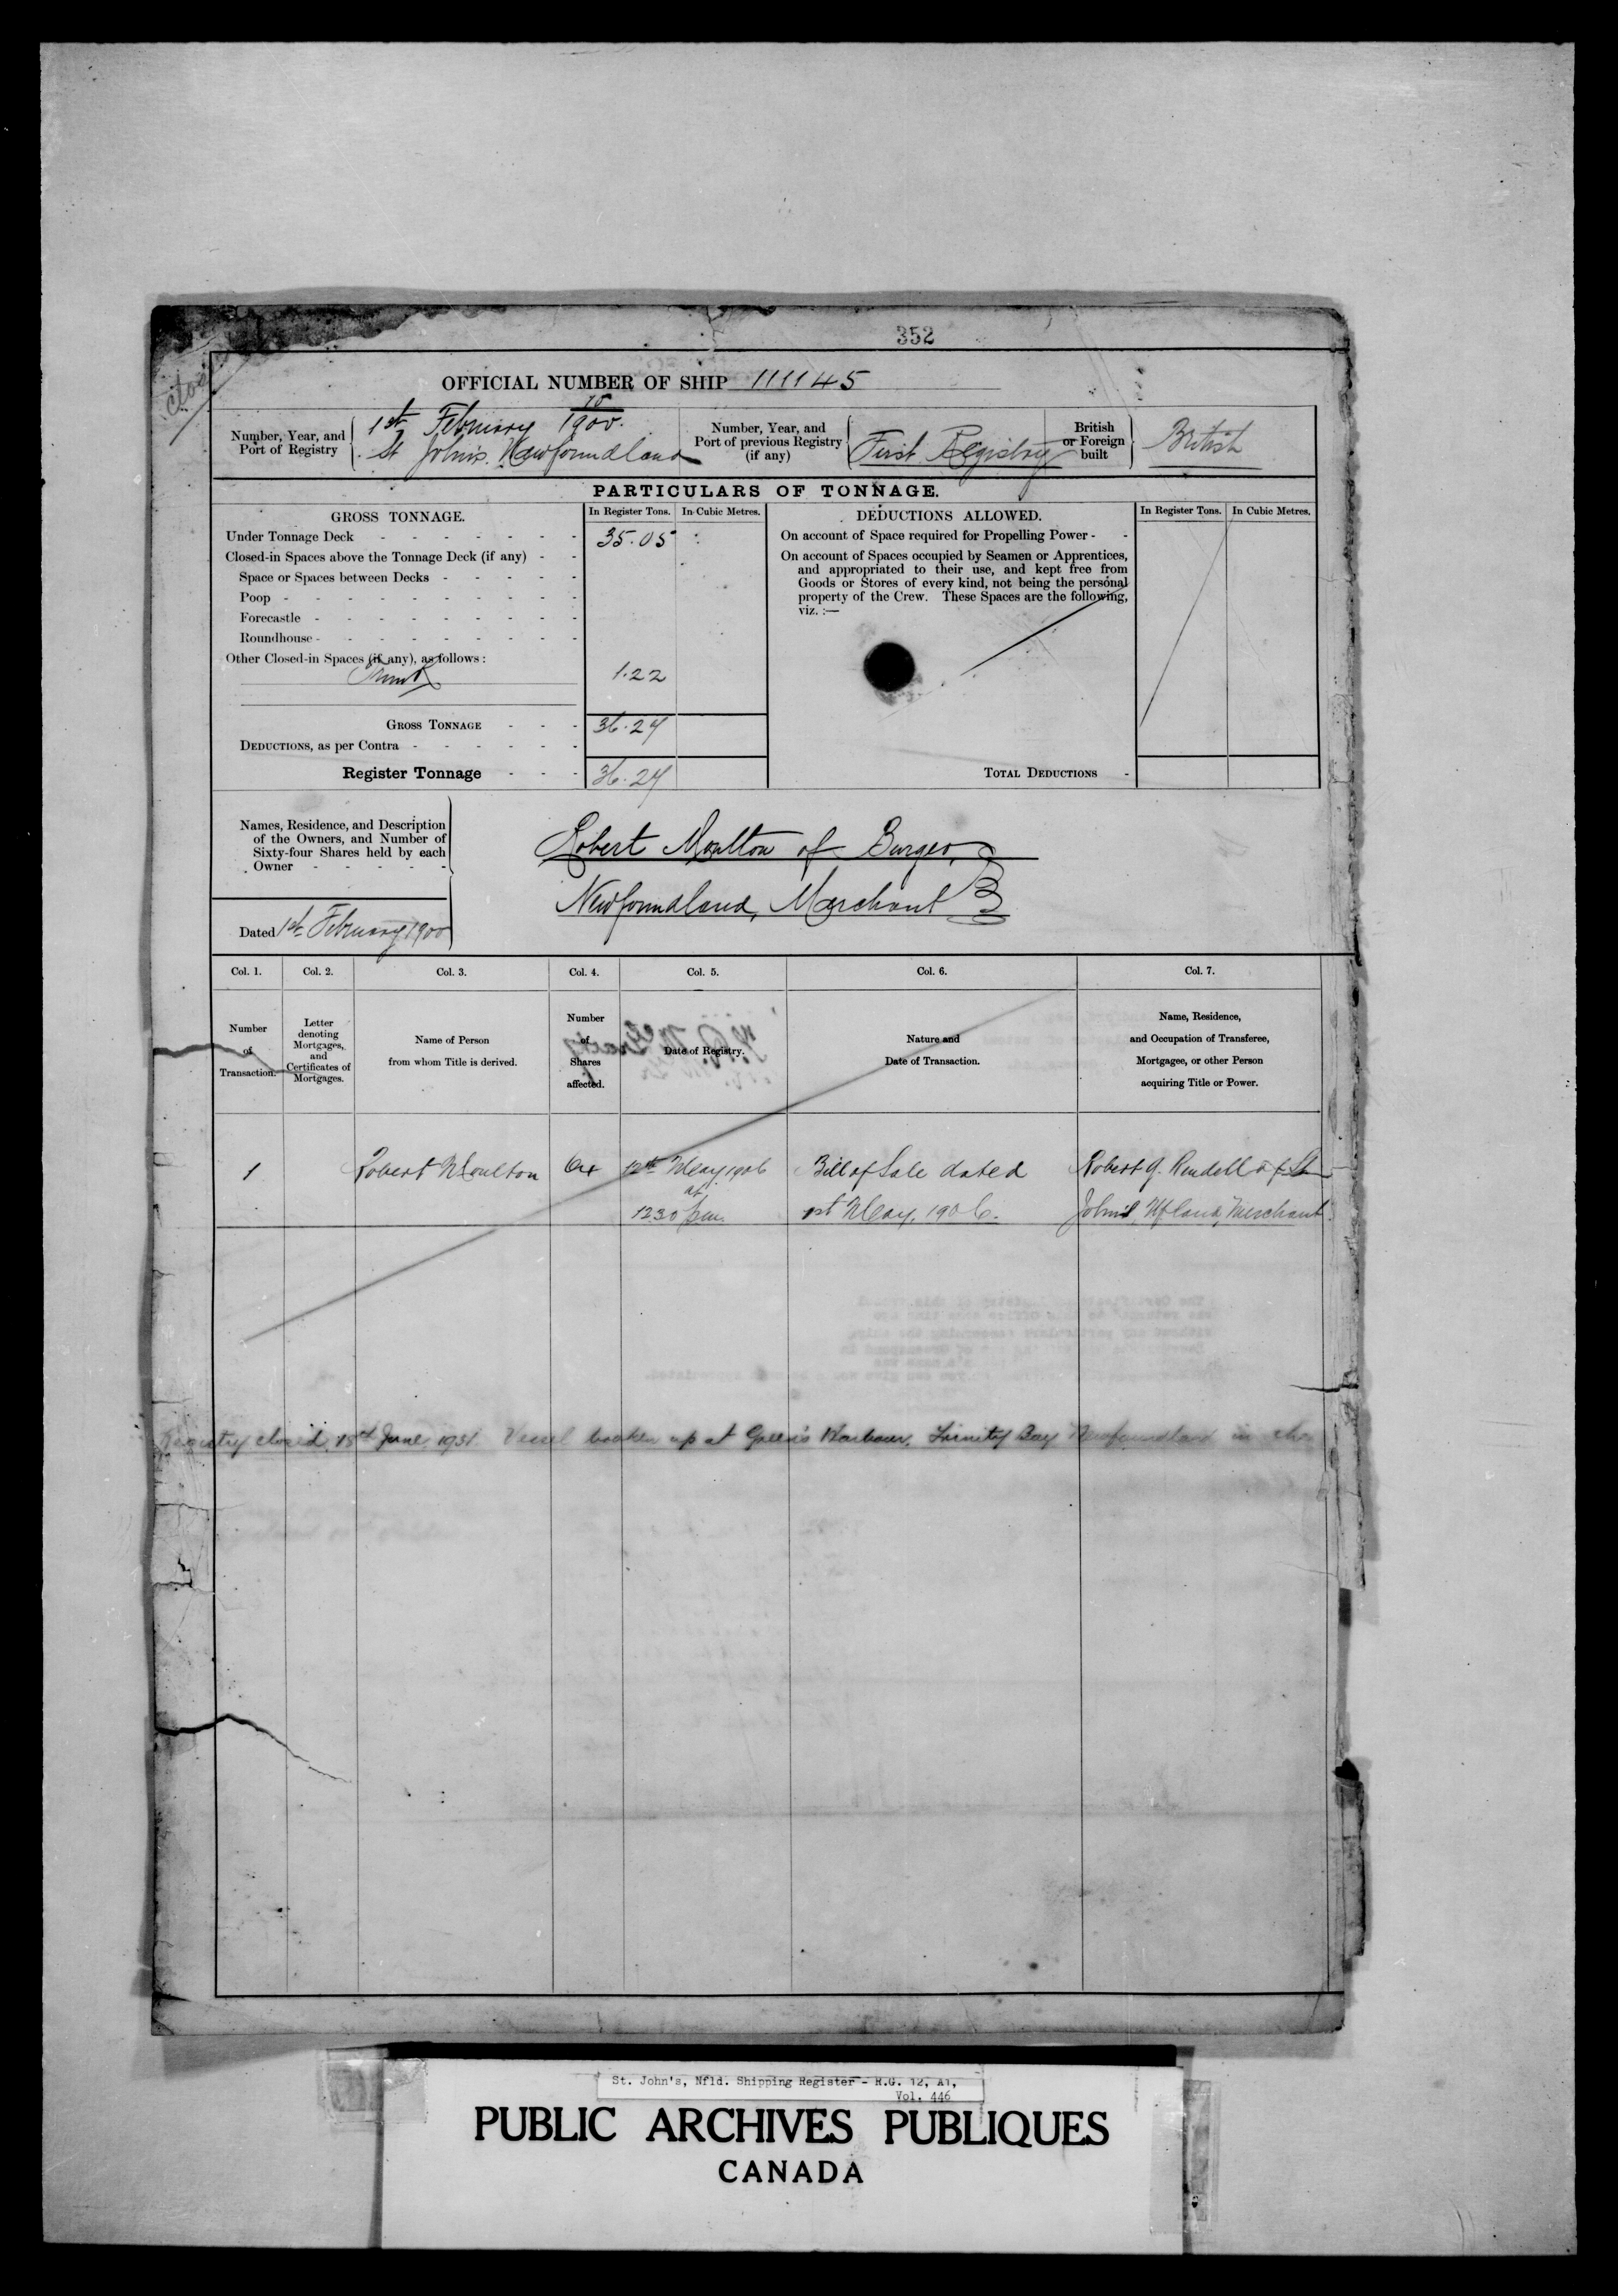 352
OFFICIAL NUMBER OF SHIP 111145
Number, Year, and
Port of Registry
1st February 1900.
St John's. Newfoundland
Number, Year, and
Port of previous Registry
(if any)
First Registry
British
or Foreign
built
British
PARTICULARS OF TONNAGE.
GROSS TONNAGE.
In Register Tons.
In Cubic Metres.
DEDUCTIONS ALLOWED.
In Register Tons.
In Cubic Metres.
Under Tonnage Deck - - - - - - - 35.05
Closed-in Spaces above the Tonnage Deck (if any) - -
Space or Spaces between Decks - - - - -
Poop - - - - - - - - - -
Forecastle - - - - - - - - -
Roundhouse - - - - - - - -
Other Closed-in Spaces (if any), as follows :
Trunk 1.22
GROSS TONNAGE - - - 36.27
DEDUCTIONS, as per Contra - - - - - -
Register Tonnage - - - 36.27
On account of Space required for Propelling Power - -
On account of Spaces occupied by Seamen or Apprentices,
and appropriated to their use, and kept free from
Goods or Stores of every kind, not being the personal
property of the Crew. These Spaces are the following,
viz. :—
TOTAL DEDUCTIONS -
Names, Residence, and Description
of the Owners, and Number of
Sixty-four Shares held by each
Owner - - - - -
Robert Moulton of Burgeo,
Newfoundland, Merchant
Dated 1st February 1900
Col. 1.
Col. 2.
Col. 3.
Col. 4.
Col. 5.
Col. 6.
Col. 7.
Number
of
Transaction.
Letter
denoting
Mortgages,
and
Certificates of
Mortgages.
Name of Person
from whom Title is derived.
Number
of
Shares
affected.
Date of Registry.
Nature and
Date of Transaction.
Name, Residence,
and Occupation of Transferee,
Mortgagee, or other Person
acquiring Title or Power.
1 Robert Moulton 64 12th May 1906 Bill of Sale dated Robert G. Rendell of St
at
12.30 p.m. 1st May, 1906. John's, Nfland, Merchant.
Registry closed 15th June, 1931. Vessel broken up at Green's Harbour, Trinity Bay Newfoundland in
St. John's, Nfld. Shipping Register - R.G. 12, A1,
Vol. 446
PUBLIC ARCHIVES PUBLIQUES
CANADA